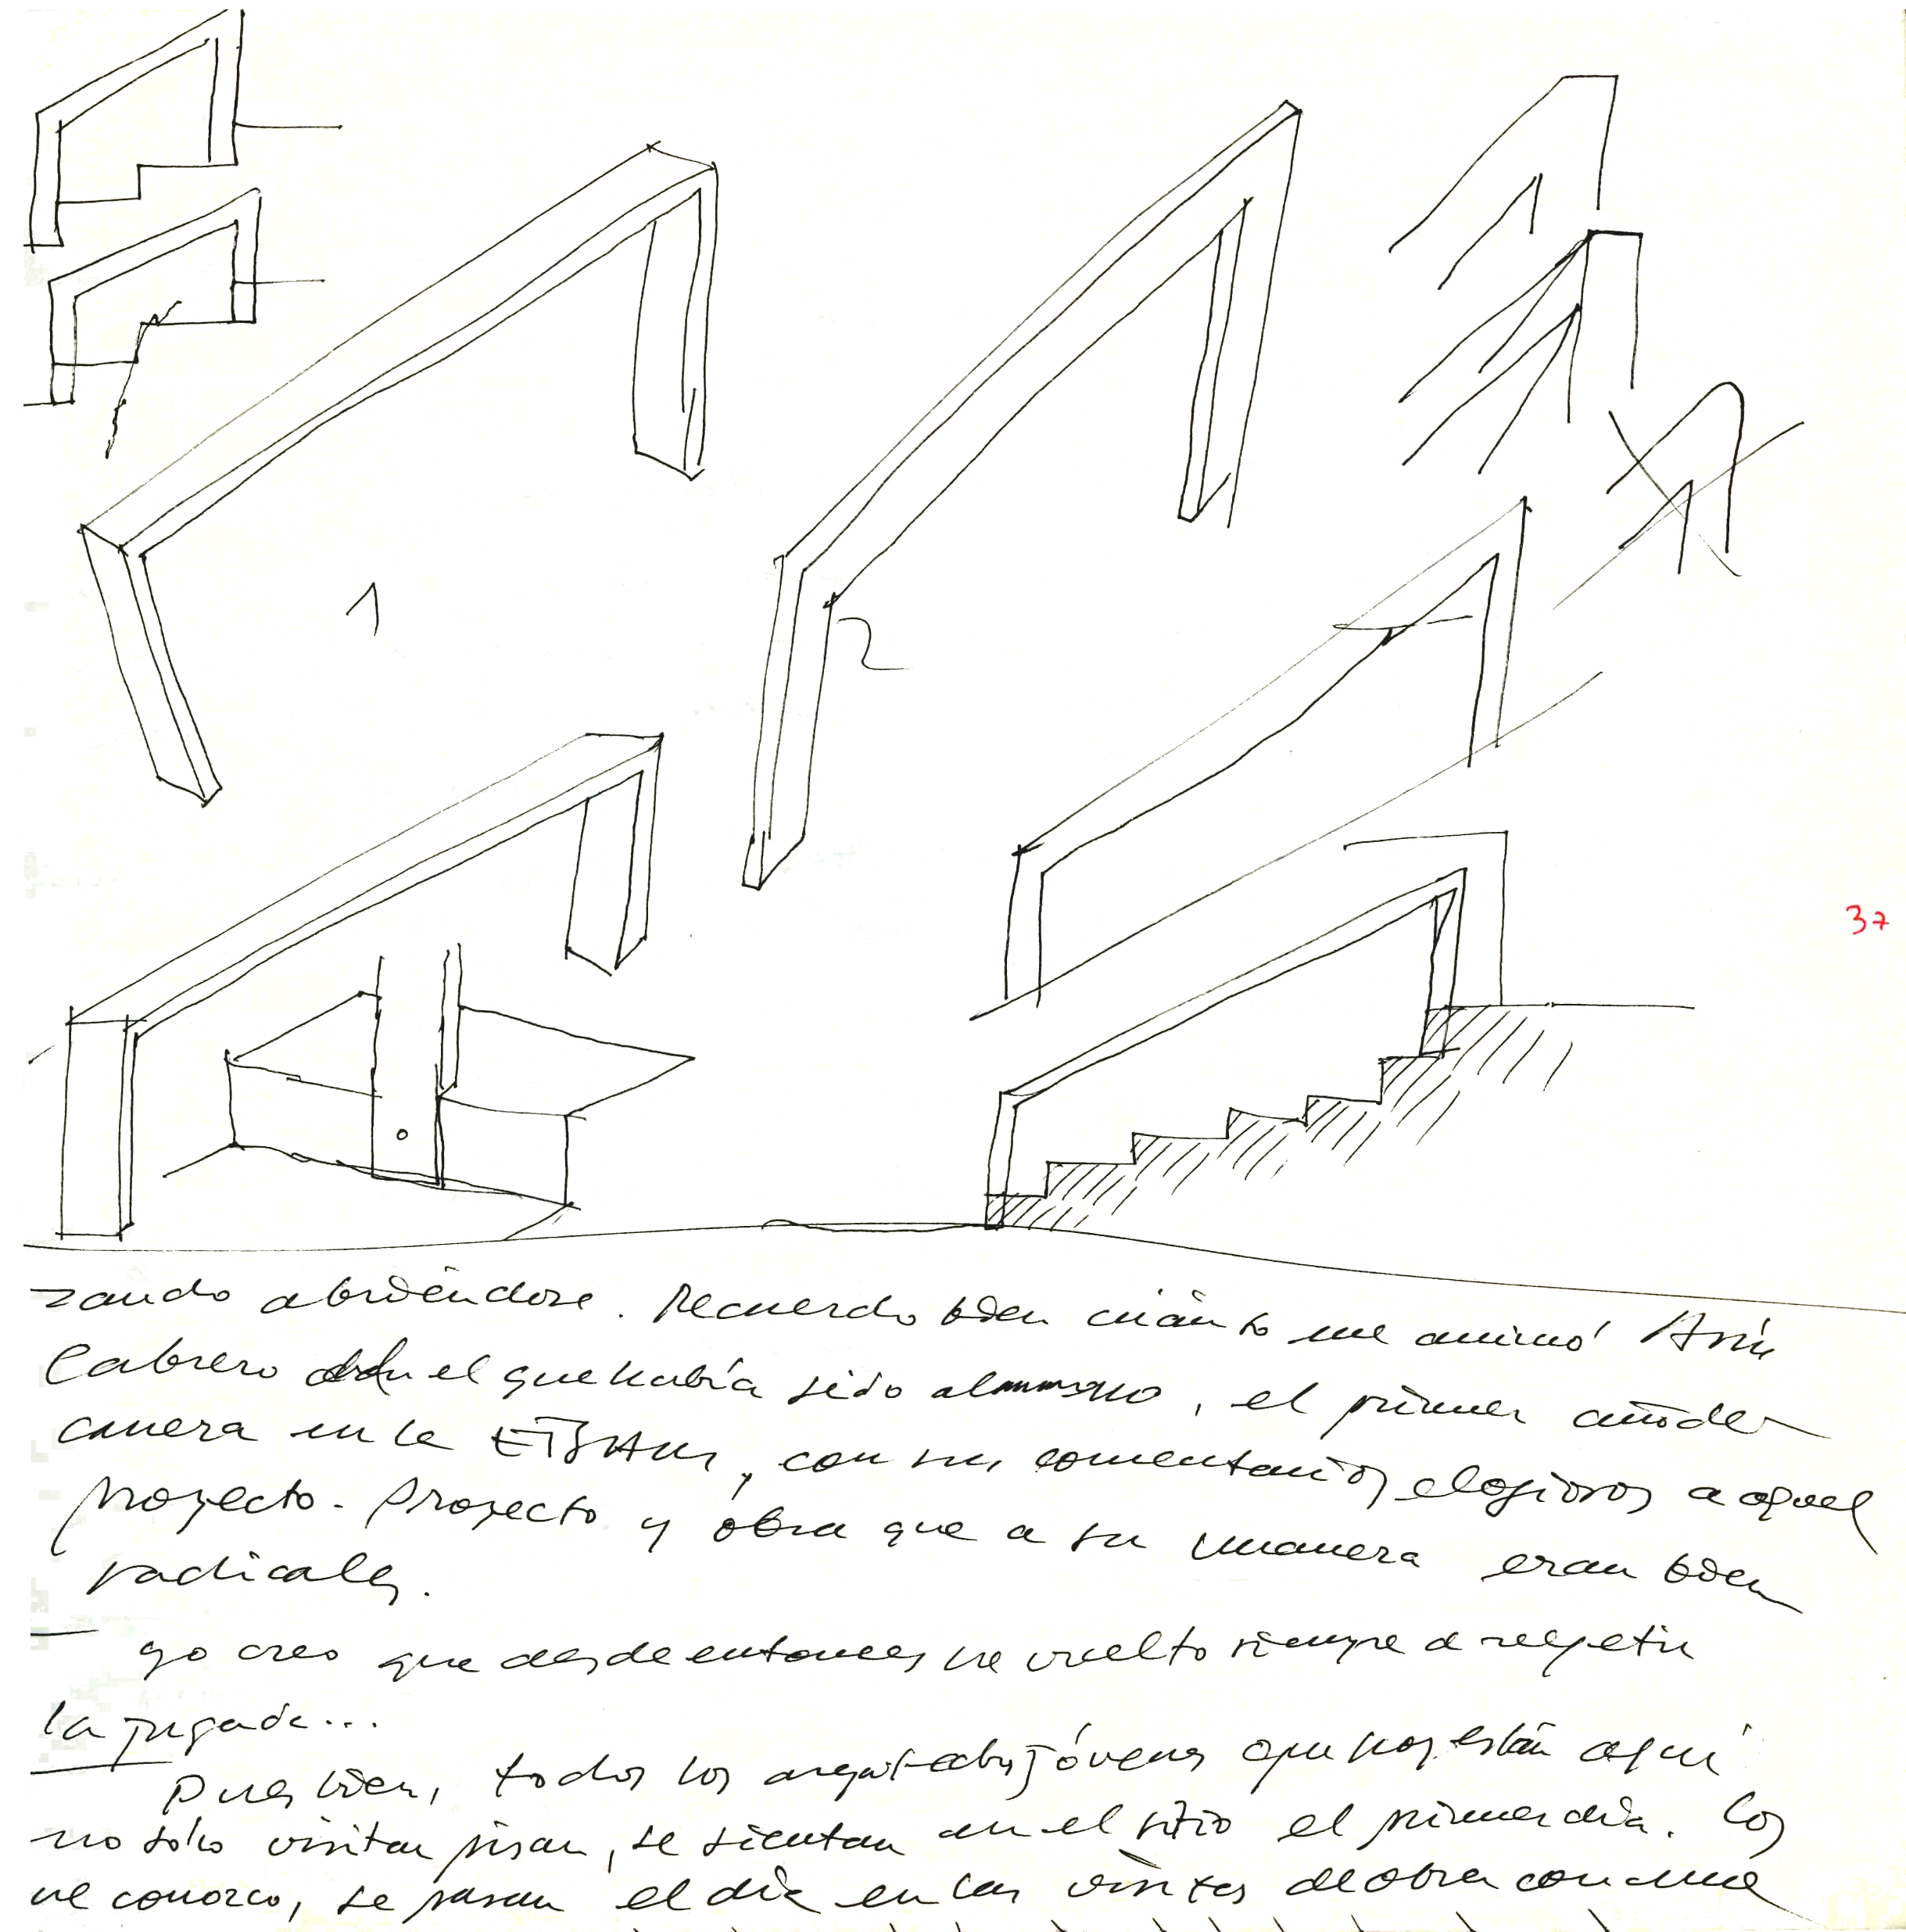 1
2
37
zando abriéndose. Recuerdo bien cuánto me animó
Cabrero del que había sido alumno, el primer año de
carrera en la ETSAM, con sus comentarios elogiosos a aquel
proyecto. Proyecto y obra que a su manera eran bien
radicales.
— yo creo que desde entonces he vuelto siempre a repetir
la jugada...
Pues bien, todos los arquitectos jóvenes que hoy están aquí
no sólo visitan pisan, se sientan en el sitio el primer día. Los
he conozco, se pasan el día en las visitas de obra con